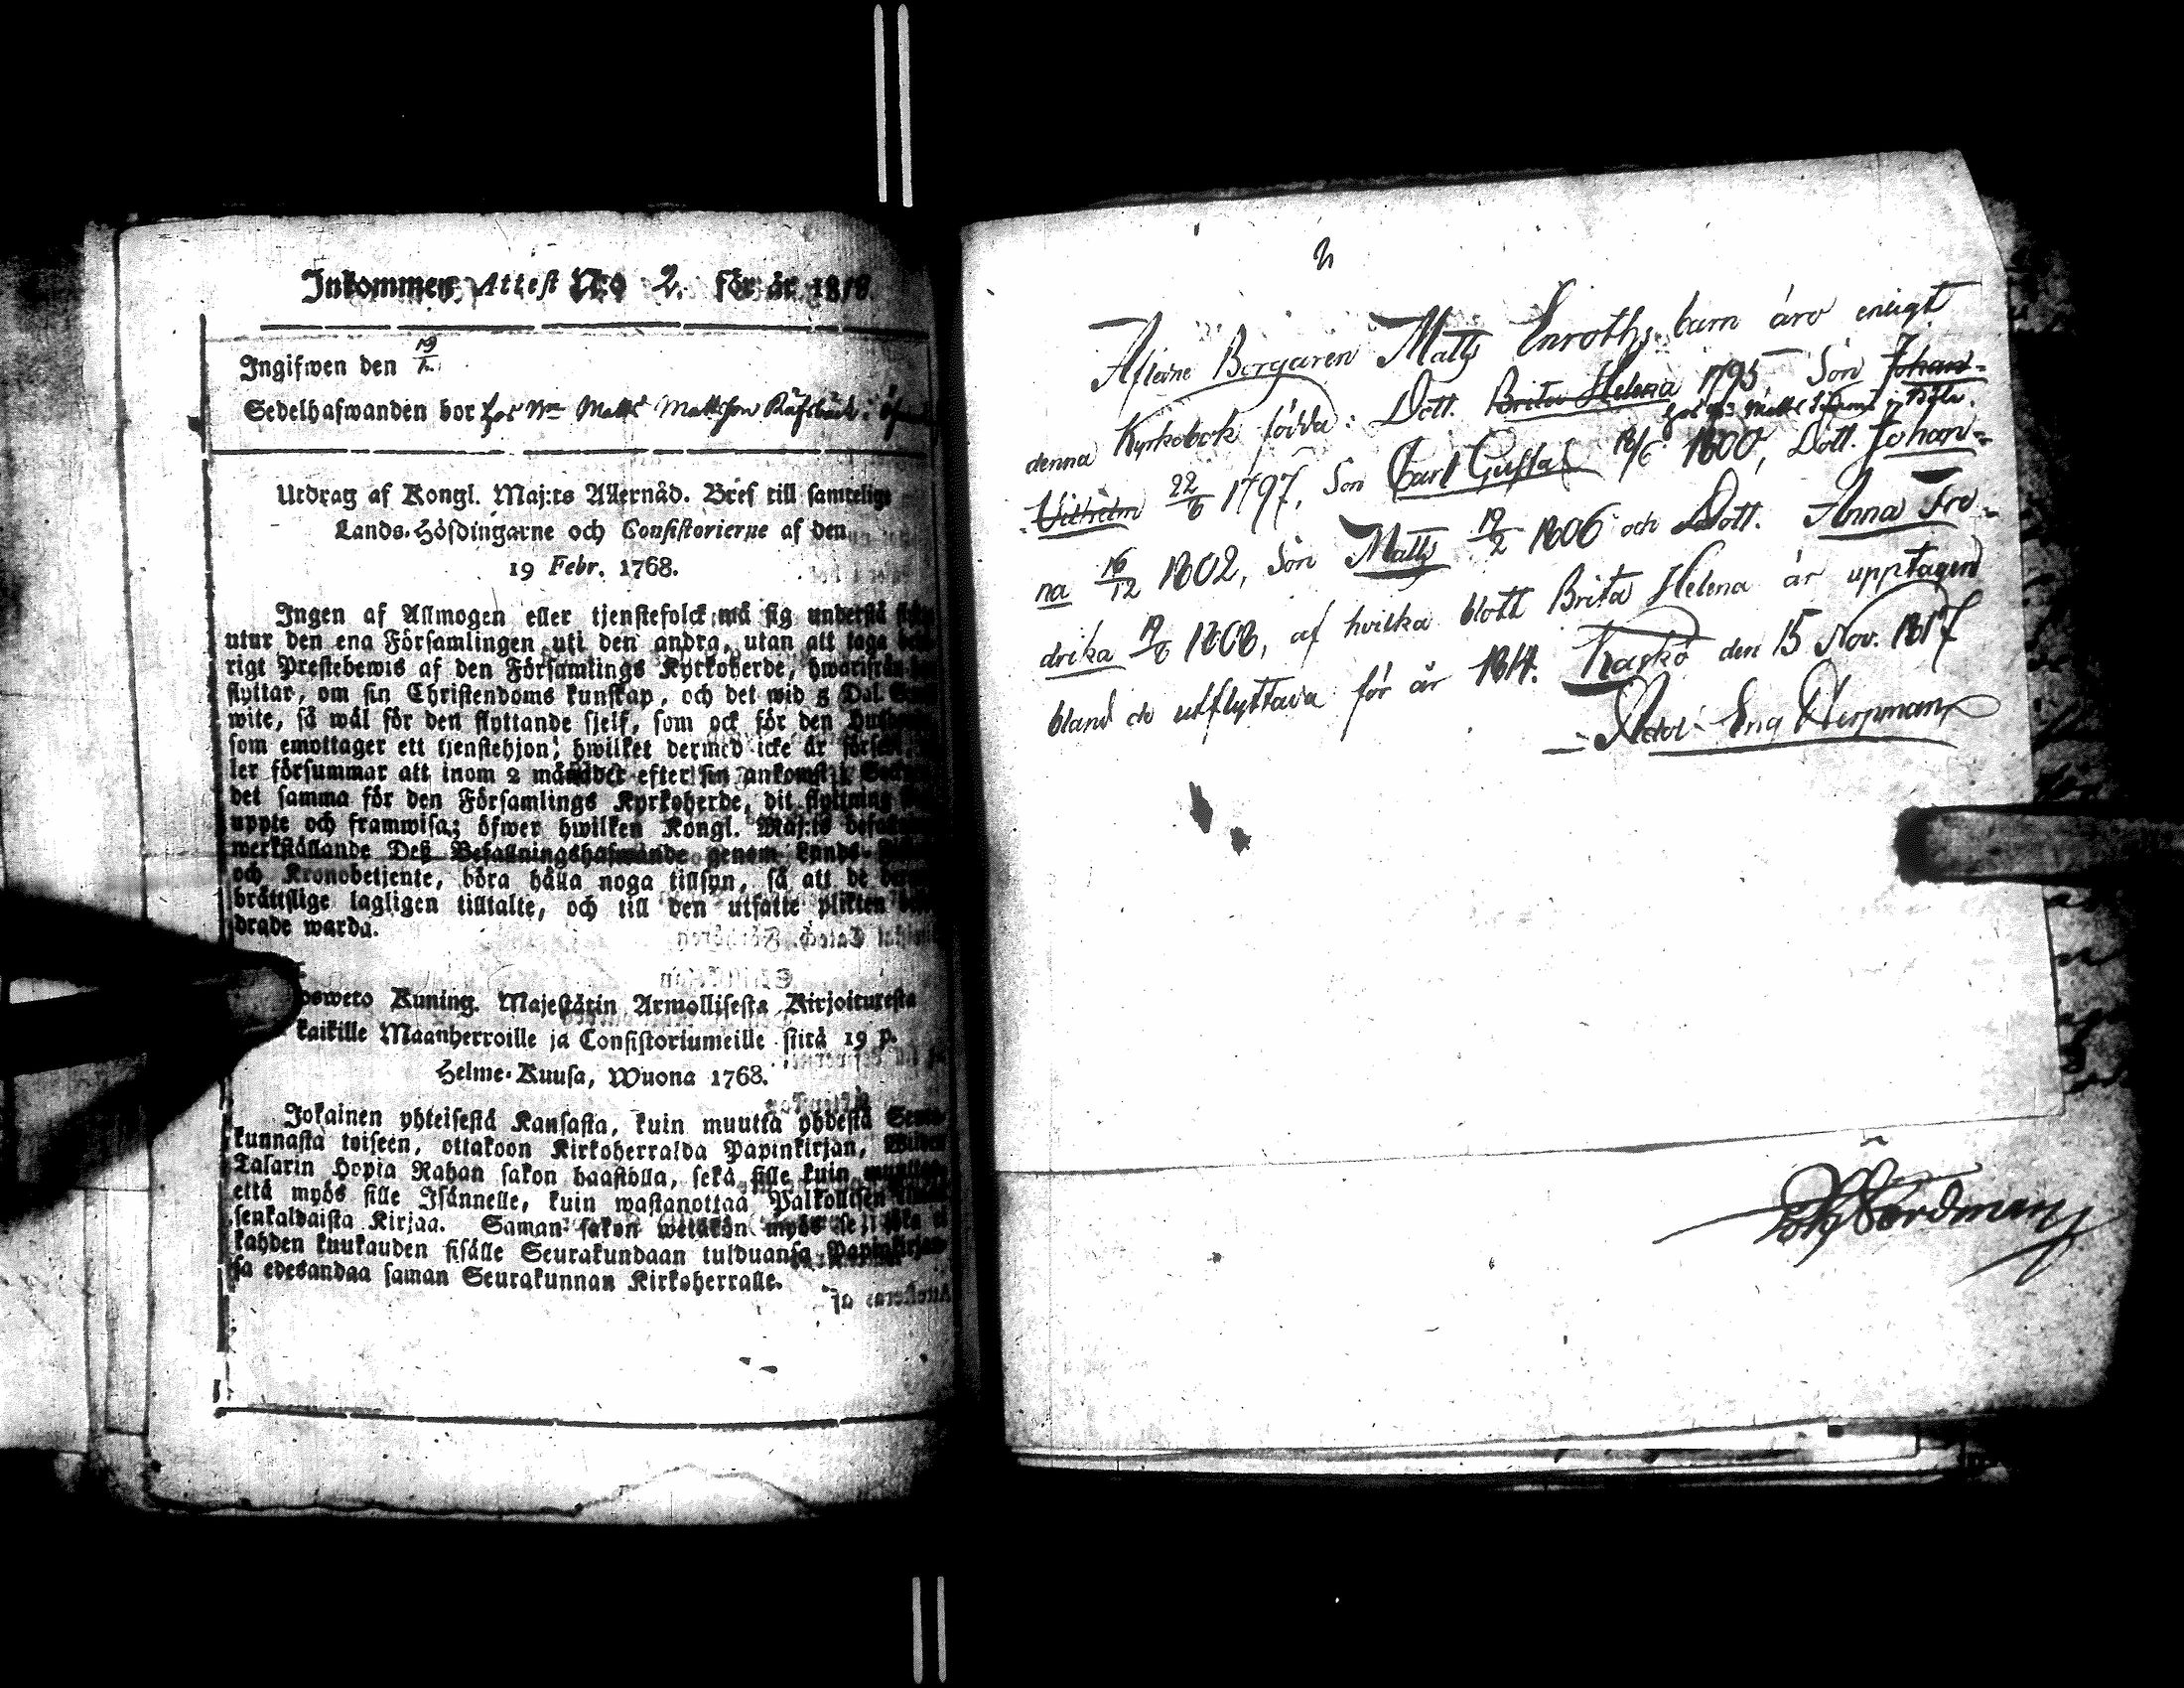 Inkommen Attest N:o 2. för år 1818.
Ingifwen den 19/1.
Sedelhafwanden bor hos Matts Mattsson
Utdrag af Kongl. Maj:ts Allernåd. Bref till samtelige
Lands-Höfdingarne och Consistorierne af den
19 Febr. 1768.
Ingen af Allmogen eller tjenstefolck må sig understå
utur den ena Församlingen uti den andra, utan att taga
rigt Prestebewis af den Församlings Kyrkoherde, hwarifrån
flyttar, om sin Christendoms kunskap, och det wid 5 Dal.
wite, så wäl för den flyttande sjelf, som ock för den
som emottager ett tjenstehjon, hwilket dermed icke är
ler försummar att inom 2 månader efter sin ankomst
det samma för den Församlings Kyrkoherde, dit flyttning
uppte och framwisa; öfwer hwilken Kongl. Maj:ts
werkställande Deß Befallningshafwande genom Lands-
och Kronobetjente, böra hålla noga tillsyn, så att de
brättslige lagligen tilltalte, och till den utsatte plikten
drade warda.
osweto Kuning. Majestätin Armollisesta Kirjoituresta
kaikille Maanherroille ja Consistoriumeille siitä 19 p.
Helme-Kuusa, Wuona 1768.
Jokainen yhteisestä Kansasta, kuin muutta yhdestä
kunnasta toiseen, ottakoon Kirkoherralda Papinkirjan,
Talarin Hopia Rahan sakon haastolla, sekä sille kuin
että myös sille Isännelle, kuin wastanottaa Palkollisen
senkaldaista Kirjaa. Saman sakon wetäkön myös se
kahden kuukauden sisälle Seurakundaan tulduansa Papinkirjan
ja edesandaa saman Seurakunnan Kirkoherralle.
2
Aflidne Borgaren Matts Enroths barn äro enligt
denna Kyrkobok födda: Dott. Brita Helena 1795, Son Johan-
Vilhelm 22/6 1797, Son Carl Gustaf 18/6 1800, Dott. Johan-
na 16/12 1802, Son Matts 19/2 1806 och Dott. Anna Fre-
drika 19/6 1808, af hvilka blott Brita Helena är upptagen
bland de utflyttade för år 1814. Kaskö den 15 Nov. 1817
Nordman